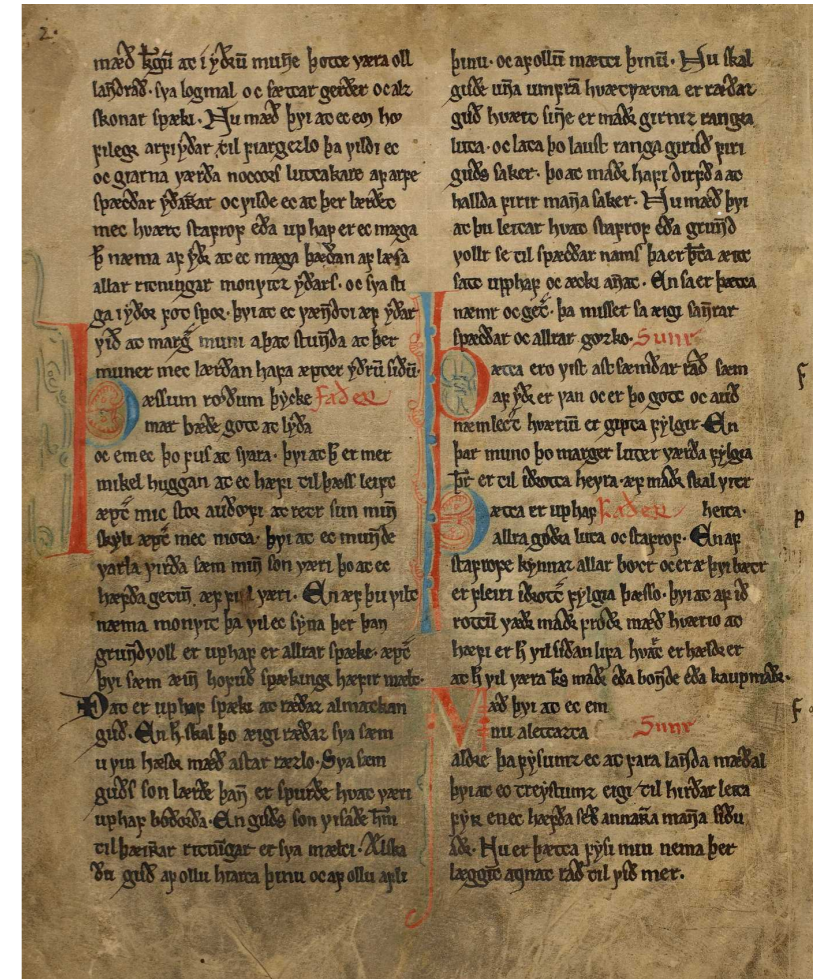 2.
mæð k̅gū̅ ac i yðrū̅ mun̅e þotte væra oll
lan̅draꝺ. sva logmal oc sættar gerðer oc alz
skonar spæki. Nu mæð þvi at ec em ho
vilegr arfi yðar til fiargezlo þa vildi ec
oc giarna værða noccors luttakare af arfe
spæcðar yðarrar oc vilde ec at þer lærðec
mec hvært stafrof eða uphaf er ec mæga
næma af yðr at ec mæga þæðan af læsa
allar ritningar monvitz yðars. oc sva sti
ga i yðor fot spor. þvi at ec vændti æf yðar
við at marg̅ muni a bac stunda at þer
muner mec lærðan hafa æpter yðrū̅ siðū̅.
Fader
Þæssum rœðum þycke
mær bæðe gott at lyða
oc em ec þo fus at svara. þvi at þ̅ er mer
mikel huggan at ec hæfi til þæss leift
æpt̅ mic stor auðœfi at rettr sun min̅
skyli æpt̅ mec niota. þvi at ec munde
varla virða sæm min̅ son væri þo at ec
hæfða getin̅. æf fifl væri. En æf þu vilt
næma monvit þa vil ec syna þer þan
grundvoll er uphaf er allrar spæke. æpt̅
þvi sæm æin̅ hofuð spækingr hæfir mælt.
Þat er uphaf spæki at ræðaz almatkan
guð. En h̅. skal þo æigi ræðaz sva sæm
u vin hældr mæð astar ræzlo. Sva sæm
guðs son lærðe þan̅ er spurðe hvat væri
uphaf boðorða. En guðs son visaðe
til þæirrar ritningar er sva mælti. Ælska
ðu guð af ollu hiarta þinu oc af ollu afli
þinu. oc af ollū̅ mætti þinū̅. Nu skal
guðe un̅a umfra̅ hvætvætna er ræðaz
guð hvært sin̅e er maðr girniz rangra
luta. oc lata þo laust ranga girnd firi
guðs saker. þo at maðr hafi dirfð a at
hallda firir man̅a saker. Nu mæð þvi
at þu leitar hvat stafrof eða grund
vollr se til spæcðar nams þa er þætta ætt
satt upphaf oc æcki an̅at. En sa er þætta
næmr oc get̅. þa misser sa æigi san̅rar
spæcðar oc allrar gozko. Sunr
Þætta ero vist ast sæmðar rað sæm
af yðr er van oc er þo gott oc auð
næmlect hværiū̅ er gipta fylgir. En
þar muno þo marger luter værða fylgia
þ̅r er til idrotta heyra. æf maðr skal vitr
Fader
heita.
Þætta er uphaf
allra goðra luta oc stafrof. En af
stafrofe kynnaz allar bocr oc er æ þvi bætr
er fleiri iðrott̅ fylgia þæsso. þvi at af ið
rottū̅ værðr maðr froðr mæð hværio at
hætti er h̅ vil siðan lifa hvat̅ er hældr er
at h̅ vil væra k̅s maðr eða bonde eða kaupmaðr.
Sunr
Mæð þvi at ec em
nu alettazta
aldre þa fysumz ec at fara landa mæðal
þvi at ec treystumz eigi til hirðar leita
fyr en ec hæfða seð annarra man̅a siðu
aðr. Nu er þætta fysi min nema þer
læggit agnat rað til við mer.